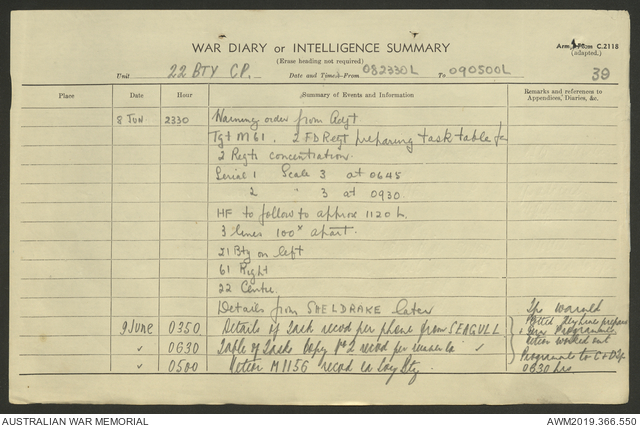 WAR DIARY or INTELLIGENCE SUMMARY
Army Form C.2118
(adapted.)
(Erase heading not required)
Unit 22 BTY CP. Date and Time:- From 082330L To 090500L
39
Place Date Hour Summary of Events and Information Remarks and references to Appendices, Diaries, &c.
8 JUN 2330 Warning order from Adjt
Tgt M61. 2 FD Regt preparing task table for
2 Regts concentration.
Serial 1 Scale 3 at 0645
2 " 3 at 0930.
HF to follow to approx 1120 h.
3 lines 100x apart.
21 Bty on left
61 Right
22 Centre.
Details from SHELDRAKE later
warned
9 June 0350 Details of Task recvd per phone from SEAGULL
0630 Table of Tasks Copy No 2 recvd per runner
worked out
0500 Meteor M1156 recvd
Programme to
0630 hrs
AUSTRALIAN WAR MEMORIAL
AWM2019.366.550